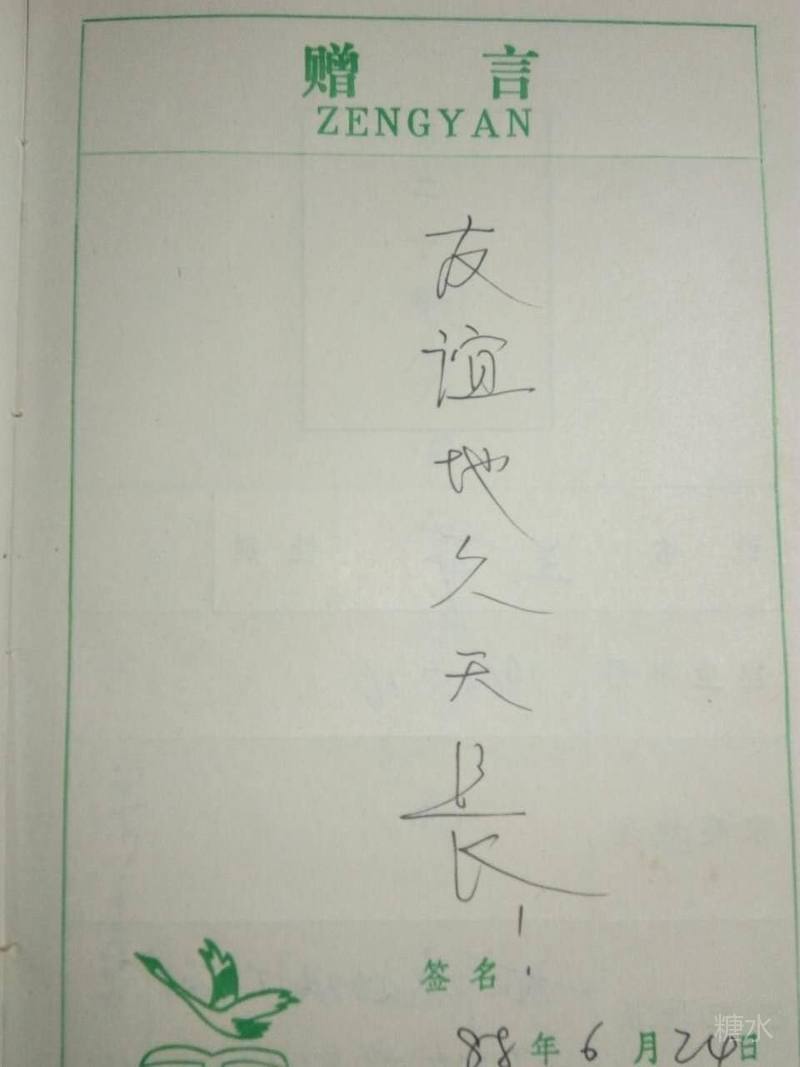 赠言
ZENGYAN
友谊地久天长!
签名
88年6月24日
糖水